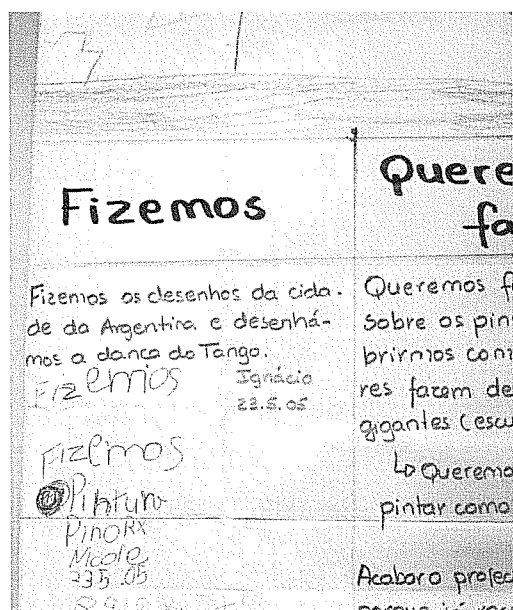 Fizemos
Fizemos os desenhos da cida-
de da Argentina e desenhá-
mos a dança do Tango.
Fizemos
Ignácio
23.5.05
Fizemos
Pintura
Nicole
235.05
Quere
fa
Queremos f
sobre os pin
brirmos com
res fazem de
gigantes (escu
↳ Queremo
pintar como
Acabar o projec